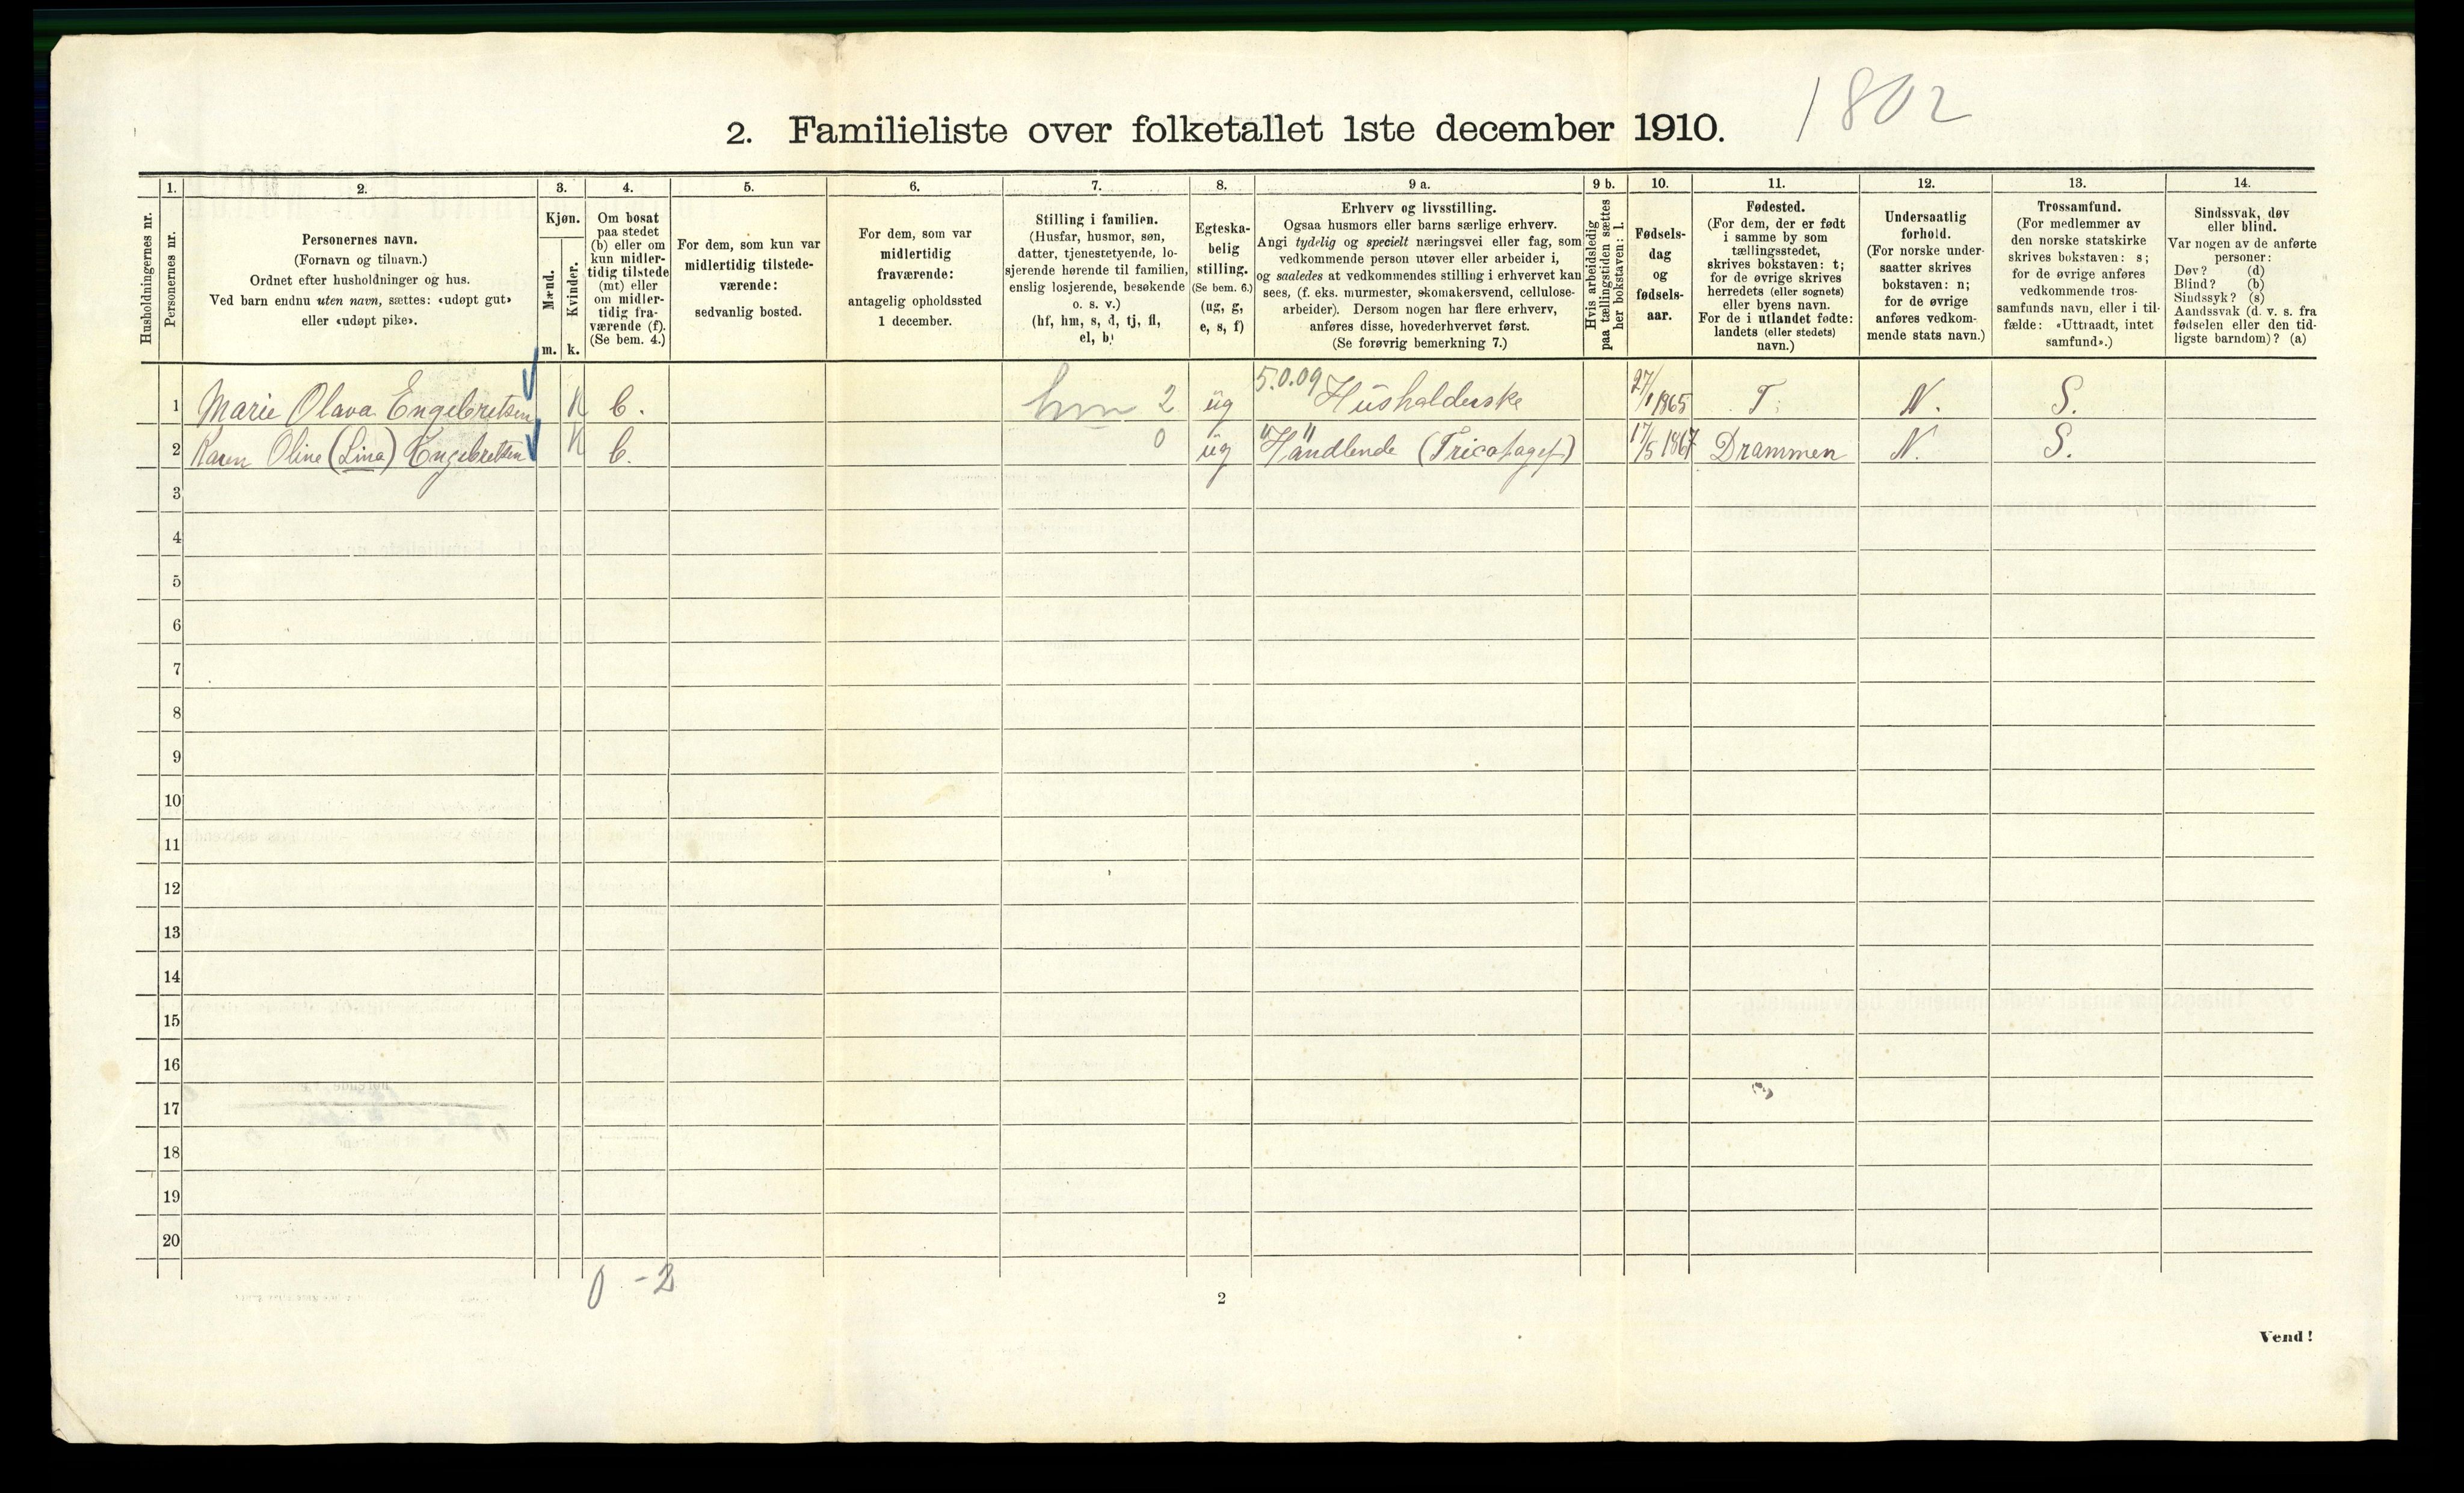 1802
2. Familieliste over folketallet 1ste december 1910.
Husholdningernes nr.
1.
Personernes nr.
2.
Personernes navn.
(Fornavn og tilnavn.)
Ordnet efter husholdninger og hus.
Ved barn endnu uten navn, sættes: «udøpt gut»
eller «udøpt pike».
3.
Kjøn.
Mænd.
Kvinder.
m.
k.
4.
Om bosat
paa stedet
(b) eller om
kun midler-
tidig tilstede
(mt) eller
om midler-
tidig fra-
værende (f).
(Se bem. 4.)
5.
For dem, som kun var
midlertidig tilstede-
værende:
sedvanlig bosted.
6.
For dem, som var
midlertidig
fraværende:
antagelig opholdssted
1 december.
7.
Stilling i familien.
(Husfar, husmor, søn,
datter, tjenestetyende, lo-
sjerende hørende til familien,
enslig losjerende, besøkende
o. s. v.)
(hf, hm, s, d, tj, fl,
el, b)
8.
Egteska-
belig
stilling.
(Se bem. 6.)
(ug, g,
e, s, f)
9 a.
Erhverv og livsstilling.
Ogsaa husmors eller barns særlige erhverv.
Angi tydelig og specielt næringsvei eller fag, som
vedkommende person utøver eller arbeider i,
og saaledes at vedkommendes stilling i erhvervet kan
sees, (f. eks. murmester, skomakersvend, cellulose-
arbeider). Dersom nogen har flere erhverv,
anføres disse, hovederhvervet først.
(Se forøvrig bemerkning 7.)
9 b.
Hvis arbeidsledig
paa tællingstiden sættes
her bokstaven: l.
10.
Fødsels-
dag
og
fødsels-
aar.
11.
Fødested.
(For dem, der er født
i samme by som
tællingsstedet,
skrives bokstaven: t;
for de øvrige skrives
herredets (eller sognets)
eller byens navn.
For de i utlandet fødte:
landets (eller stedets)
navn.)
12.
Undersaatlig
forhold.
(For norske under-
saatter skrives
bokstaven: n;
for de øvrige
anføres vedkom-
mende stats navn.)
13.
Trossamfund.
(For medlemmer av
den norske statskirke
skrives bokstaven: s;
for de øvrige anføres
vedkommende tros-
samfunds navn, eller i til-
fælde: «Uttraadt, intet
samfund».)
14.
Sindssvak, døv
eller blind.
Var nogen av de anførte
personer:
Døv? (d)
Blind? (b)
Sindssyk? (s)
Aandssvak (d. v. s. fra
fødselen eller den tid-
ligste barndom)? (a)
1 Marie Olava Engebretsen K b. hm 2 ug 5.0.09 Husholderske 27/1 1865 T. N. S.
2 Karen Oline (Lina) Engebretsen K b. 0 ug "Handlende" (Tricotage) 17/5 1867 Drammen N. S.
3
4
5
6
7
8
9
10
11
12
13
14
15
16
17
18
19
20
0 - 2
2
Vend!